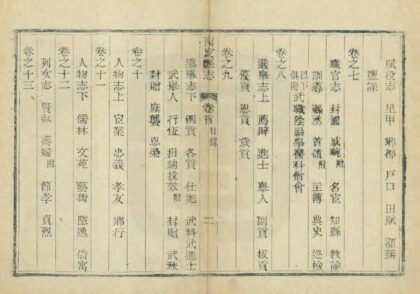 賦役志 里甲 鄉都 戶口 田賦 額辦
鹽課
卷之七
職官志 封國 戚畹附 名宦 知縣 教諭
訓導 縣丞 首領附 主簿 典史 巡檢
以下武職陰陽學醫科僧會
俱附
卷之八
選舉志上 薦辟 進士 舉人 副貢 拔貢
優貢 恩貢 歲貢
卷之九
志
卷首 目錄
二
選舉志下 例貢 各貢 仕進 武科武進士
武舉人 行伍 捐納投效附 封贈 武秩
封贈 廕襲 恩榮
卷之十
人物志上 宦業 忠義 孝友 鄉行
卷之十一
人物志下 儒林 文苑 藝術 隱逸 僑寓
卷之十二
列女志 賢淑 壽婦附 節孝 貞烈
卷之十三